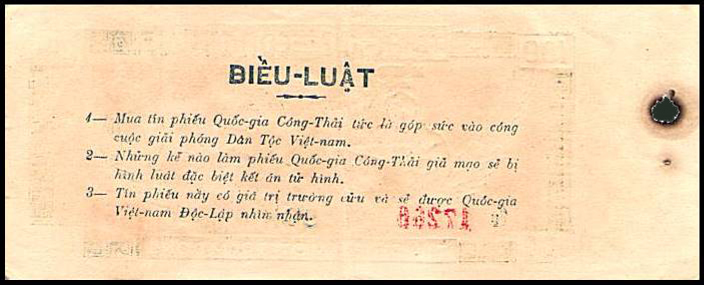 BIỀU-LUẬT
1— Mua tín phiếu Quốc-gia Công-Thải tức là góp sức vào công
cuộc giải phóng Dân Tộc Việt-nam.
2— Những kẻ nào làm phiếu Quốc-gia Công-Thải giả mạo sẽ bị
hình luật đặc biệt kết án tử hình.
3— Tín phiếu nầy có giá trị trường cửu và sẽ được Quốc-gia
Việt-nam Độc-Lập nhìn nhận.